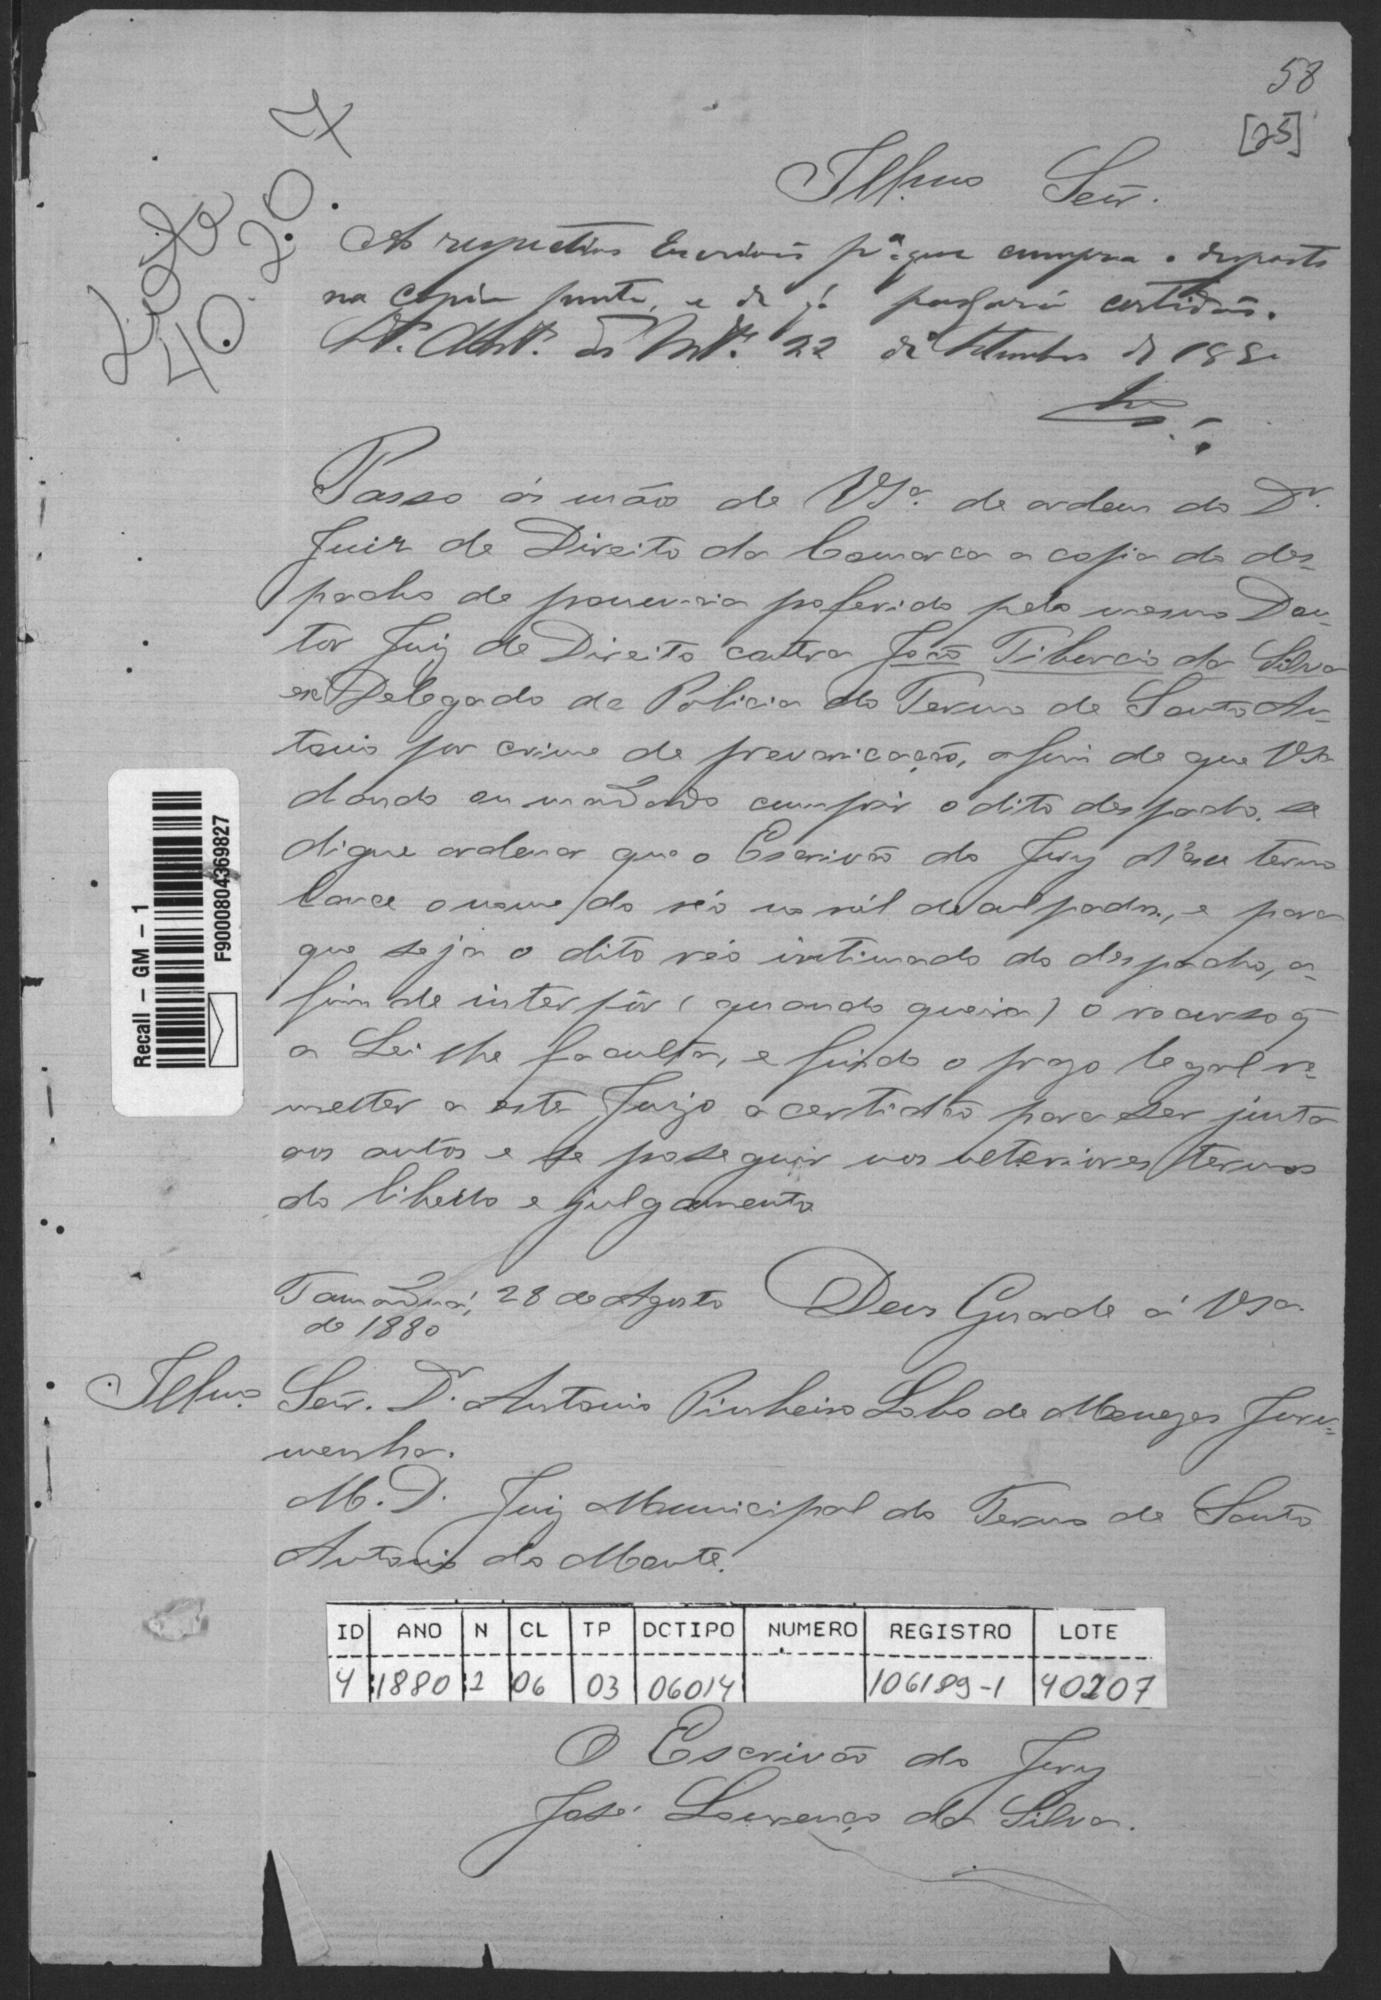 58
[25]
Lote
40.20.7
Illmo Senr.
Ao respectivo Escrivão pa. que cumpra o disposto
na copia junta, e de já passará certidão.
Sto. Anto. do Mte. 22 de Setembro de 1880
Passo ás mãos de VSa. de ordem do Dr.
Juiz de Direito da Comarca a copia do des-
pacho de pronuncia proferido pelo mesmo Dou-
tor Juiz de Direito contra João Tiburcio da Silva
ex Delegado de Policia do Termo de Santo An-
tonio por crime de prevaricação, afim de que VSa
dando ou mandando cumprir o dito despacho, se
digne ordenar que o Escrivão do Jury d'esse termo
lance o nome do réo no ról de culpados, e para
que seja o dito réo intimado do despacho, a-
fim de interpôr (querendo queira) o recurso q̃
a Lei lhe faculta, e findo o prazo legal re-
metter a este Juizo a certidão para ser junta
aos autos e se proseguir nos ulteriores termos
do libello e julgamento
Tamanduá, 28 de Agosto
de 1880
Deus Guarde á VSa.
Illmo. Senr. Dr. Antonio Pinheiro Lobo de Menezes Juru-
menha.
M. D. Juiz Municipal do Termo de Santo
Antonio do Monte.
ID ANO N CL TP DCTIPO NUMERO REGISTRO LOTE
4 1880 2 06 03 06014 106189-1 40207
O Escrivão do Jury
José Lourenço da Silva.
Recall – GM – 1
F9000804369827